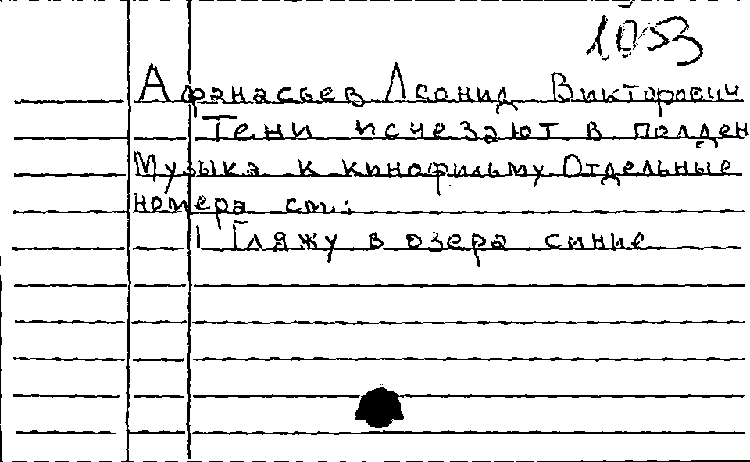 1053
Афанасьев Леонид Викторович
Тени исчезают в полден
Музыка к кинофильму Отдельные
номера см:
1 Гляжу в озера синие